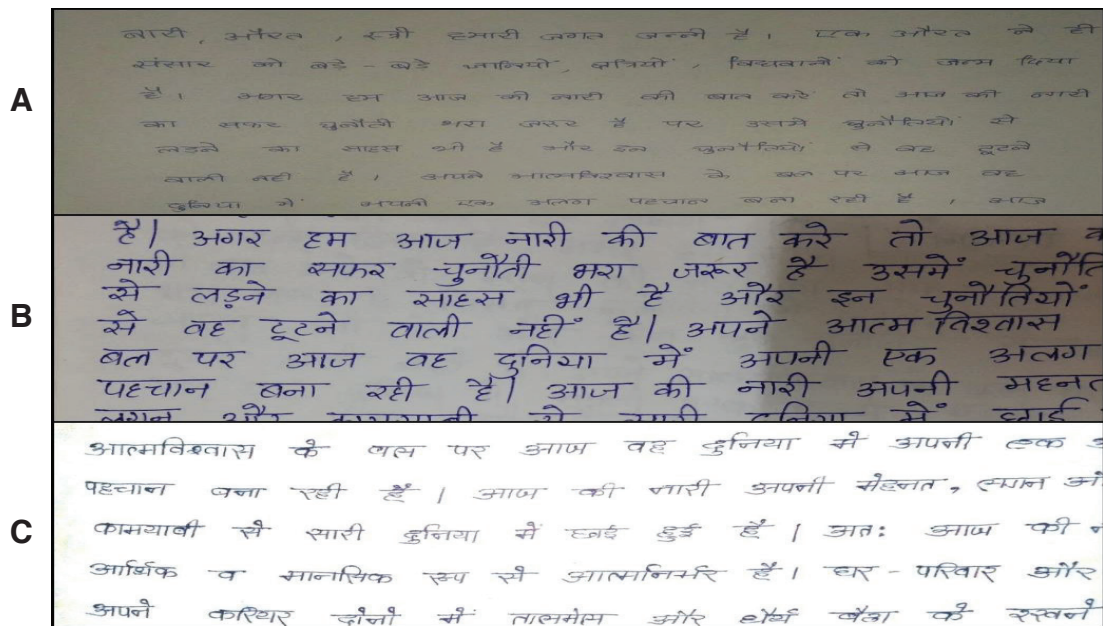 A
नारी, औरत, स्त्री हमारी जगत जन्नी है। एक औरत ने ही
संसार को बडे-बडे ज्ञानियों, क्षत्रियों, विद्यवानों को जन्म दिया
है। अगर हम आज की नारी की बात करें तो आज की नारी
का सफर चुनौती भरा जरूर है पर उसमे चुनौतियों से
लडने का साहस भी है और इन चुनौतियों से वह टूटने
वाली नही है। अपने आत्मविश्वास के बल पर आज वह
दुनिया में अपनी एक अलग पहचान बना रही है। आज
B
है| अगर हम आज नारी की बात करे तो आज क
नारी का सफर चुनौती भरा जरूर है उसमें चुनौति
से लड़ने का साहस भी है और इन चुनौतियों
से वह टूटने वाली नहीं है| अपने आत्म विश्वास
बल पर आज वह दुनिया में अपनी एक अलग
पहचान बना रही है| आज की नारी अपनी महनत
लगन और कामयाबी से सारी दुनिया में छाई
C
आत्मविश्वास के बल पर आज वह दुनिया मे अपनी एक अ
पहचान बना रही है | आज की नारी अपनी मेहनत, लगन औ
कामयाबी से सारी दुनिया में छाई हुई है | अतः आज की न
आर्थिक व मानसिक रूप से आत्मनिर्भर है। घर-परिवार और
अपने करियर दोनो में तालमेल और धैर्य बैठा के रखने